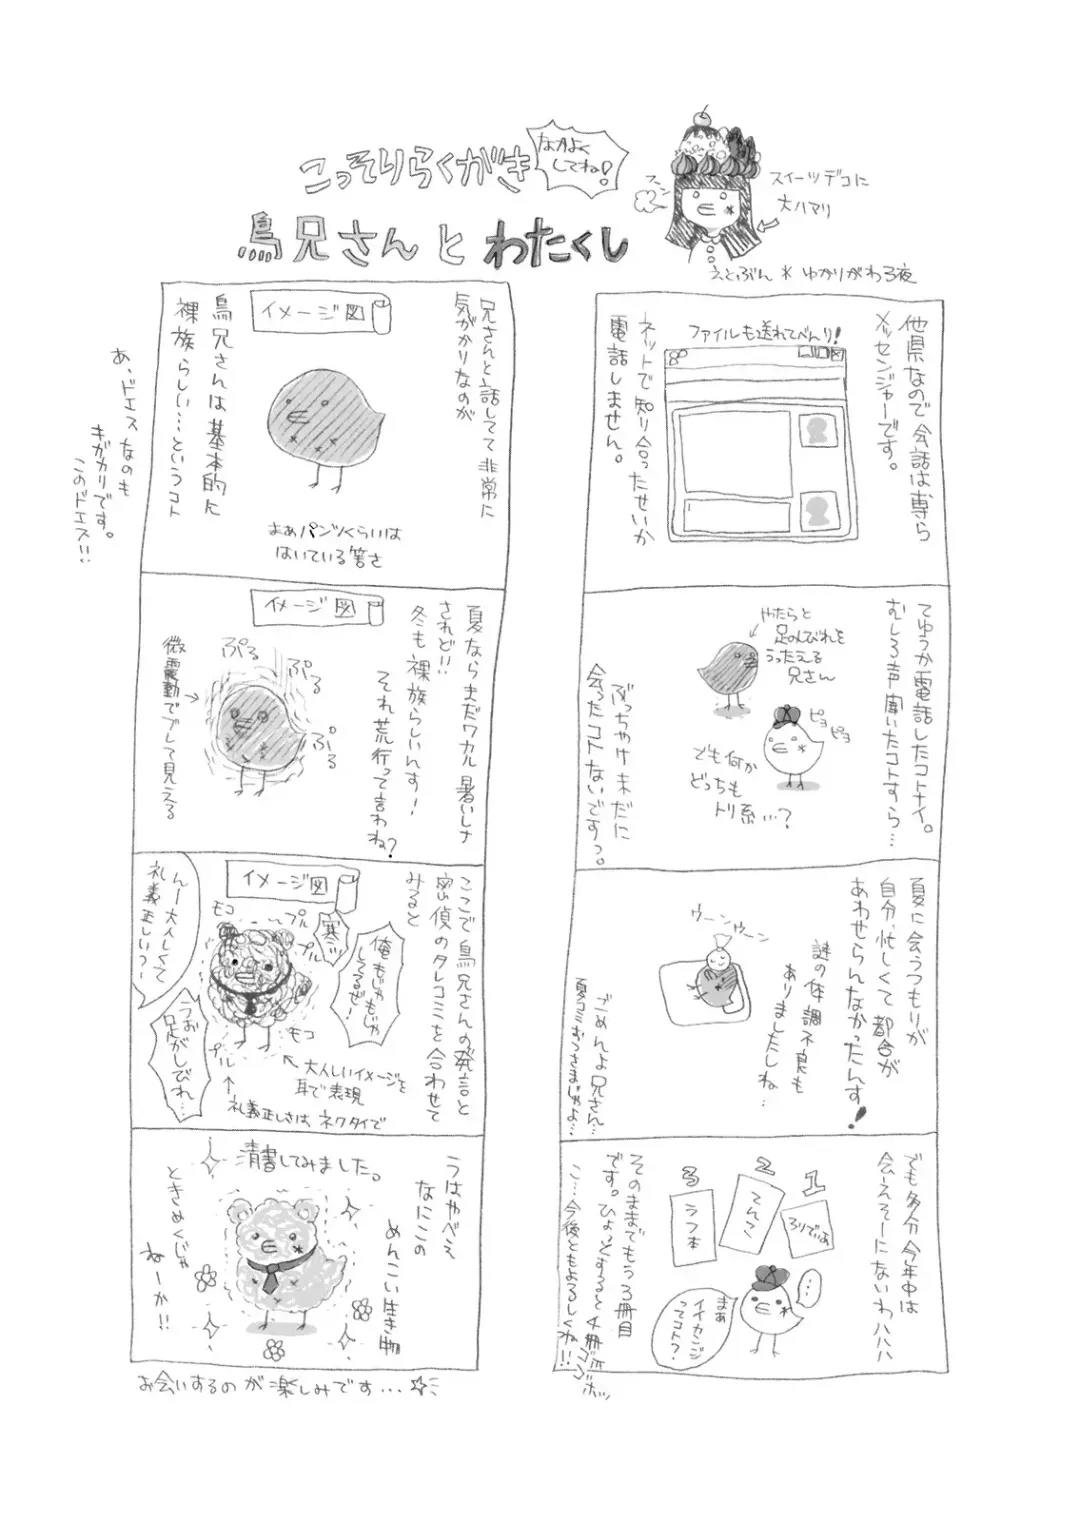 こっそりらくがき
なかよく
してね!
鳥兄さんとわたくし
フーン
スイーツデコに
大ハマリ
えとぶん * ゆかりがわる夜
他県なので会話は専ら
メッセンジャーです。
ファイルも送れてべんり!
ネットで知り合ったせいか
電話しません。
てゆうか電話したコトナイ。
むしろ声聞いたコトすら…
やたらと
足のしびれを
うったえる
兄さん
ピヨ
ピヨ
でも何か
どっちも
トリ系…?
ぶっちゃけ未だに
会ったコトないですっ。
夏に会うつもりが
自分、忙しくて都合が
あわせらんなかったんす!
謎の体調不良も
ありましたしね…
ウーンウーン
ごめんよ兄さん…
夏コミおつさまじゃよ…
でも多分今年中は
会えそーにないわハハハ
1
ろりでぃあ
2
てんこ
3
ラフ本
…
まあ
イイカンジ
ってコト?
そのままでもう3冊目
です。ひょっとすると4冊
ゴゴボッ
こ…今後ともよろしくね!!
兄さんと話してて非常に
気がかりなのが
イメージ図
鳥兄さんは基本的に
裸族らしい…というコト
まぁパンツくらいは
はいている筈さ
あ、ドエスなのも
キガカリです。
このドエス!!
夏ならまだワカル暑いしさ
されど!!
冬も裸族らしいんす!
それ荒行って言わね?
イメージ図
ぷる
ぷる
ぷる
微震動でブレて見える
ここで鳥兄さんの発言と
密偵のタレコミを合わせて
みると
イメージ図
寒ッ
俺もじゃもじゃ
してるぜ!
モコ
プル
プル
モコ
プル
んー大人しくて
礼義正しいっ
うお
足がしびれ…
←大人しいイメージを
耳で表現
礼義正しさは、ネクタイで
うはやべえ
なにこの
めんこい生き物
清書してみました。
ときめくじゃ
ねーか!!
お会いするのが楽しみです…☆